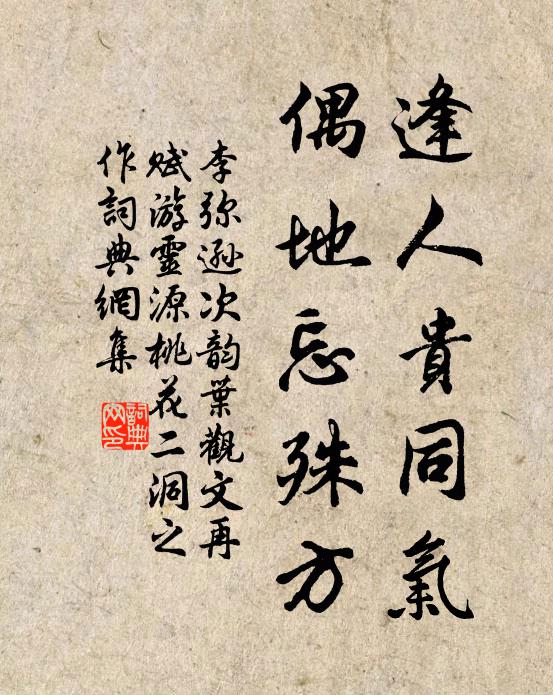 逢人貴同氣
偶地忘殊方
李弥遜次韵葉觀文再
賦游靈源桃花二洞之
作詞典網集
詞典
网印